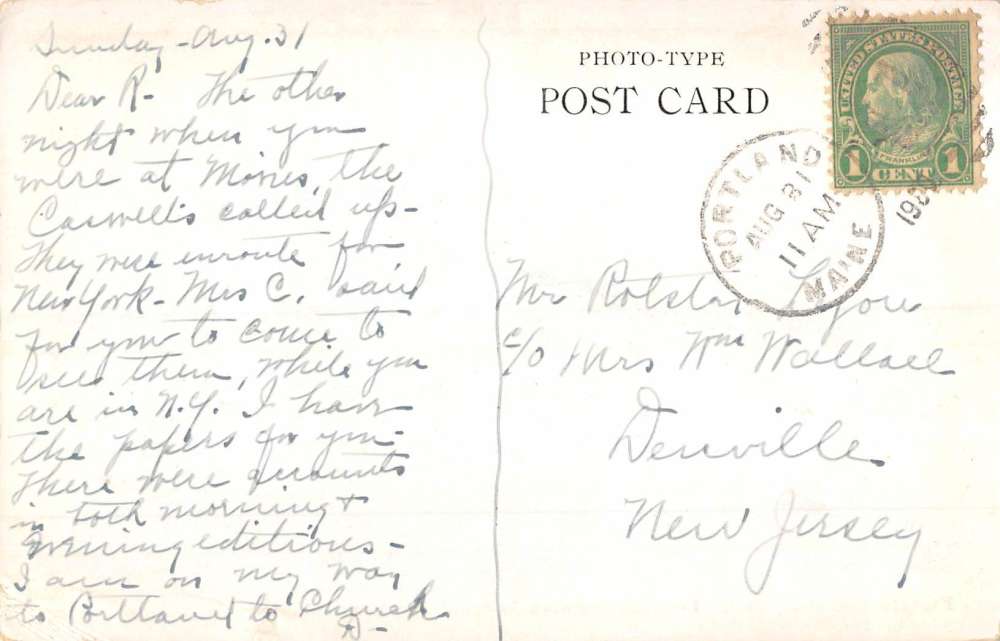 Sunday - Aug. 31
Dear R - The other
night when you
were at Movies, the
Caswells called up -
They were enroute for
New York - Mrs C. said
for you to come to
see them, while you
are in N.Y. I have
the papers for you -
There were accounts
in both morning &
Evening editions -
I am on my way
to Portland to Church
D -
PHOTO-TYPE
POST CARD
UNITED STATES POSTAGE
FRANKLIN
1 CENT 1
PORTLAND
AUG 31
11 AM
MAINE
Mr Rolston Lyon
c/o Mrs Wm Wallace
Denville
New Jersey